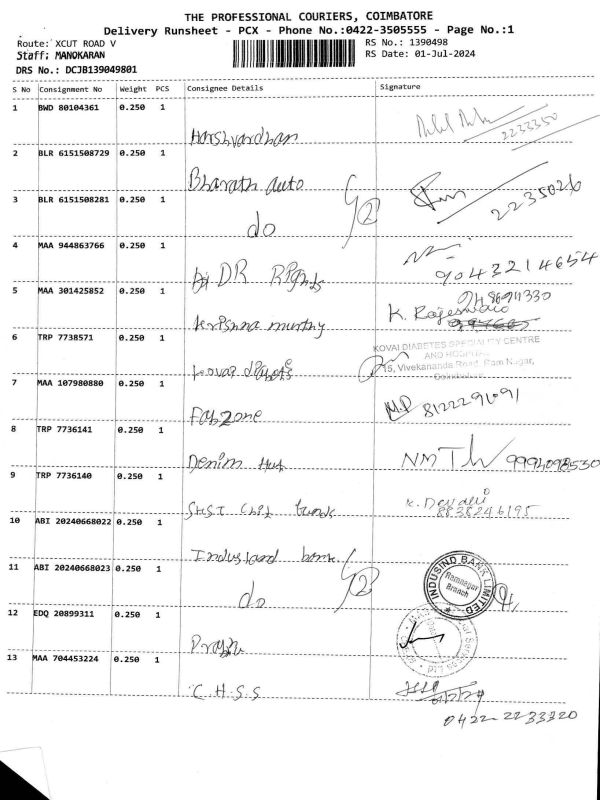 THE PROFESSIONAL COURIERS, COIMBATORE
Delivery Runsheet - PCX - Phone No.:0422-3505555 - Page No.:1
Route: XCUT ROAD V
RS No.: 1390498
Staff: MANOKARAN
RS Date: 01-Jul-2024
DRS No.: DCJB139049801
S No Consignment No Weight PCS Consignee Details Signature
1 BWD 80104361 0.250 1
Harshvardhan
2233350
2 BLR 6151508729 0.250 1
Bharath auto
3 BLR 6151508281 0.250 1
do 2
2235026
4 MAA 944863766 0.250 1
DR
9043214654
5 MAA 301425852 0.250 1
Krishna murthy
K. Rajeswari
6 TRP 7738571 0.250 1
KOVAI DIABETES SPECIALITY CENTRE
AND HOSPITAL
15, Vivekananda Road, Ram Nagar,
Kovai
7 MAA 107980880 0.250 1
Fabzone
M.P 8122291091
8 TRP 7736141 0.250 1
Denim Hub
9994098530
9 TRP 7736140 0.250 1
Chit funds
8838246195
10 ABI 20240668022 0.250 1
Indusland bank
11 ABI 20240668023 0.250 1
do 2
INDUSIND BANK LIMITED
Ramnagar
Branch
12 EDQ 20899311 0.250 1
13 MAA 704453224 0.250 1
C.H.S.S
0422-2233320